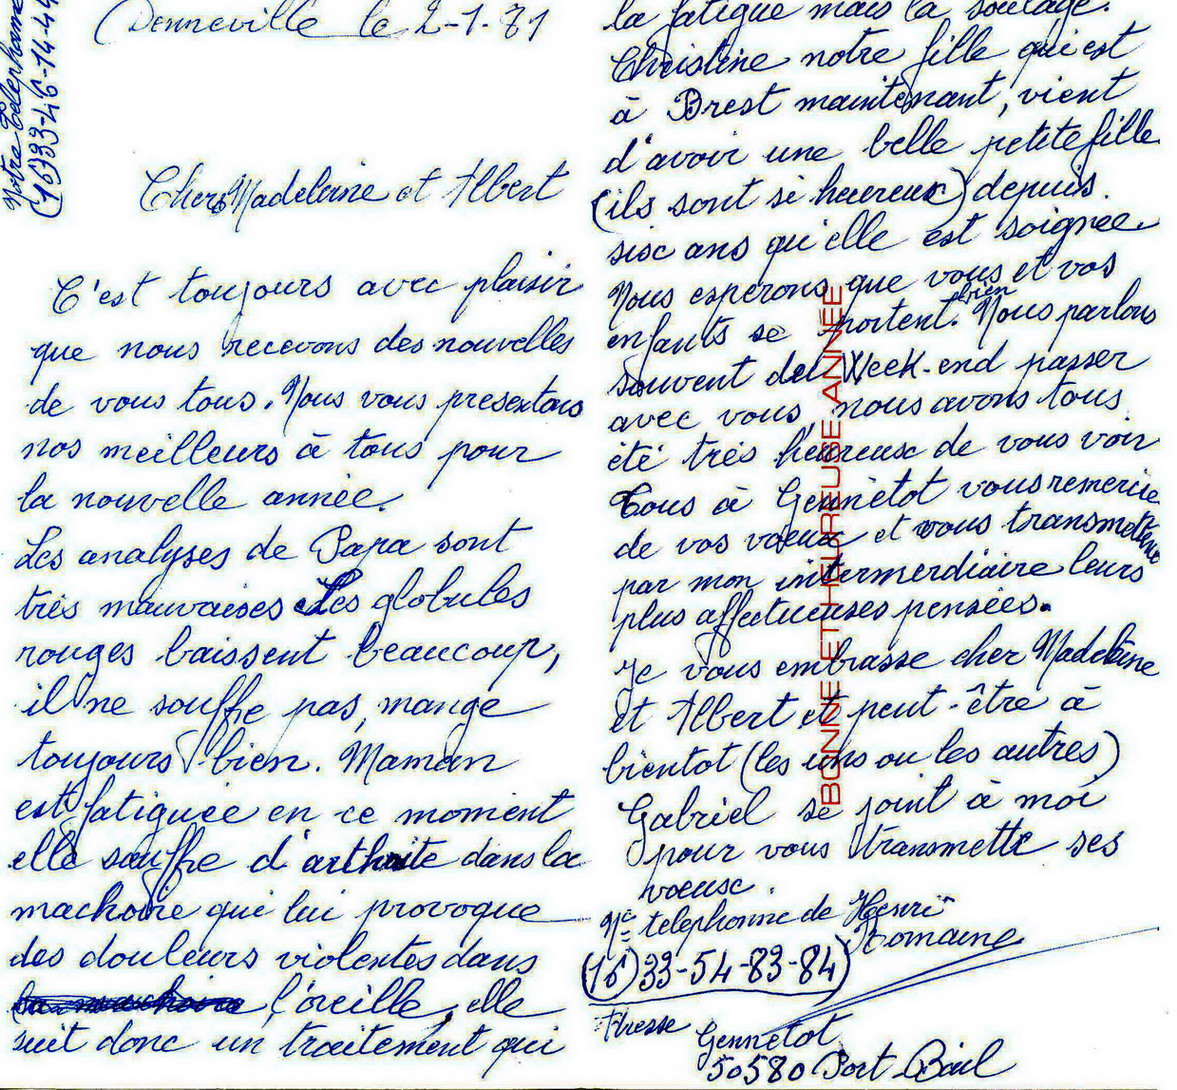 Denneville le 2-1-81
Notre Telephone
(16)33-46-14-4
Chers Madeleine et Albert
C'est toujours avec plaisir
que nous recevons des nouvelles
de vous tous. Nous vous presentons
nos meilleurs à tous pour
la nouvelle année.
Les analyses de Papa sont
très mauvaises Les globules
rouges baissent beaucoup,
il ne souffre pas, mange
toujours bien. Maman
est fatiguée en ce moment
elle souffre d'arthrite dans la
machoire qui lui provoque
des douleurs violentes dans
l'oreille, elle
suit donc un traitement qui
la fatigue mais la soulage.
Christine notre fille qui est
à Brest maintenant, vient
d'avoir une belle petite fille
(ils sont si heureux) depuis
six ans qu'elle est soignée
Nous esperons que vous et vos
enfants se portent bien. Nous parlons
souvent du Week-end passer
avec vous, nous avons tous
été très heureux de vous voir
Tous à Gennetot vous remercie
de vos voeux et vous transmettent
par mon intermerdiaire leurs
plus affectueuses pensées.
Je vous embrasse cher Madeleine
et Albert et peut-être à
bientot (les uns ou les autres)
Gabriel se joint à moi
pour vous transmettre ses
voeux.
N° telephonne de Henri
Romaine
(16) 33-54-83-84)
Adresse Gennetot
50580 Port-Bail
BONNE ET HEUREUSE ANNEE